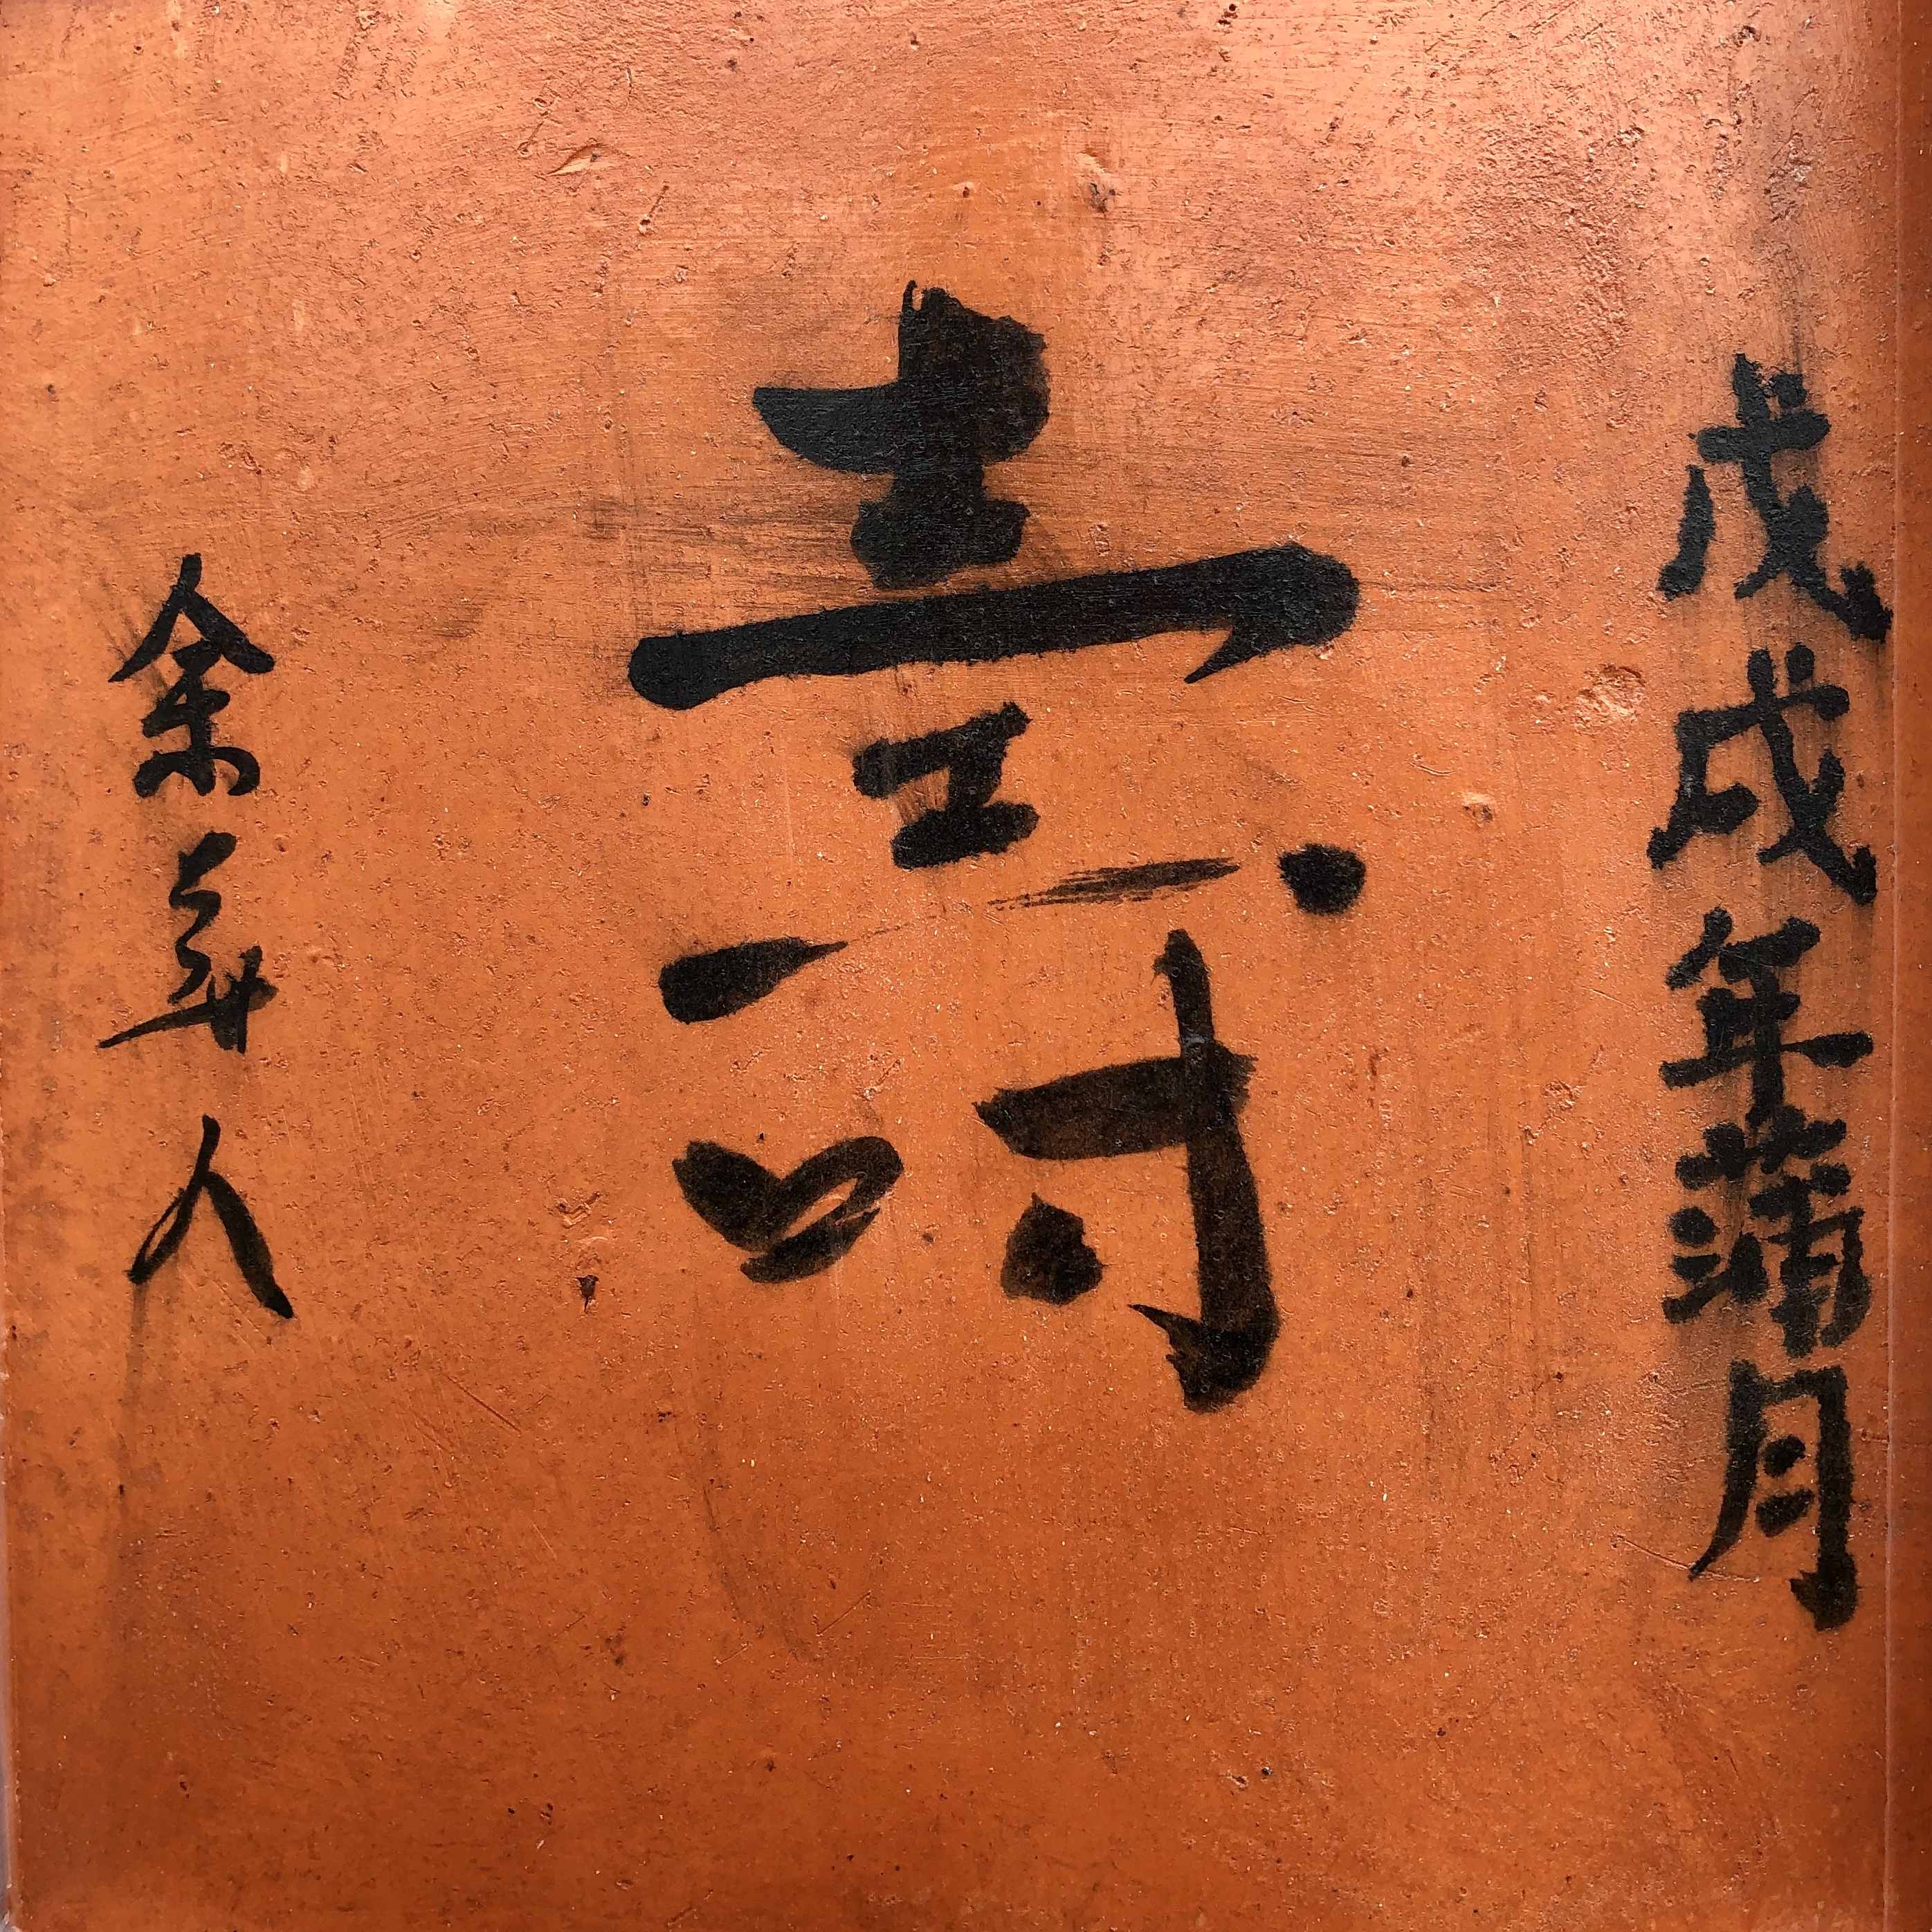 戊戌年蒲月
壽
余華人